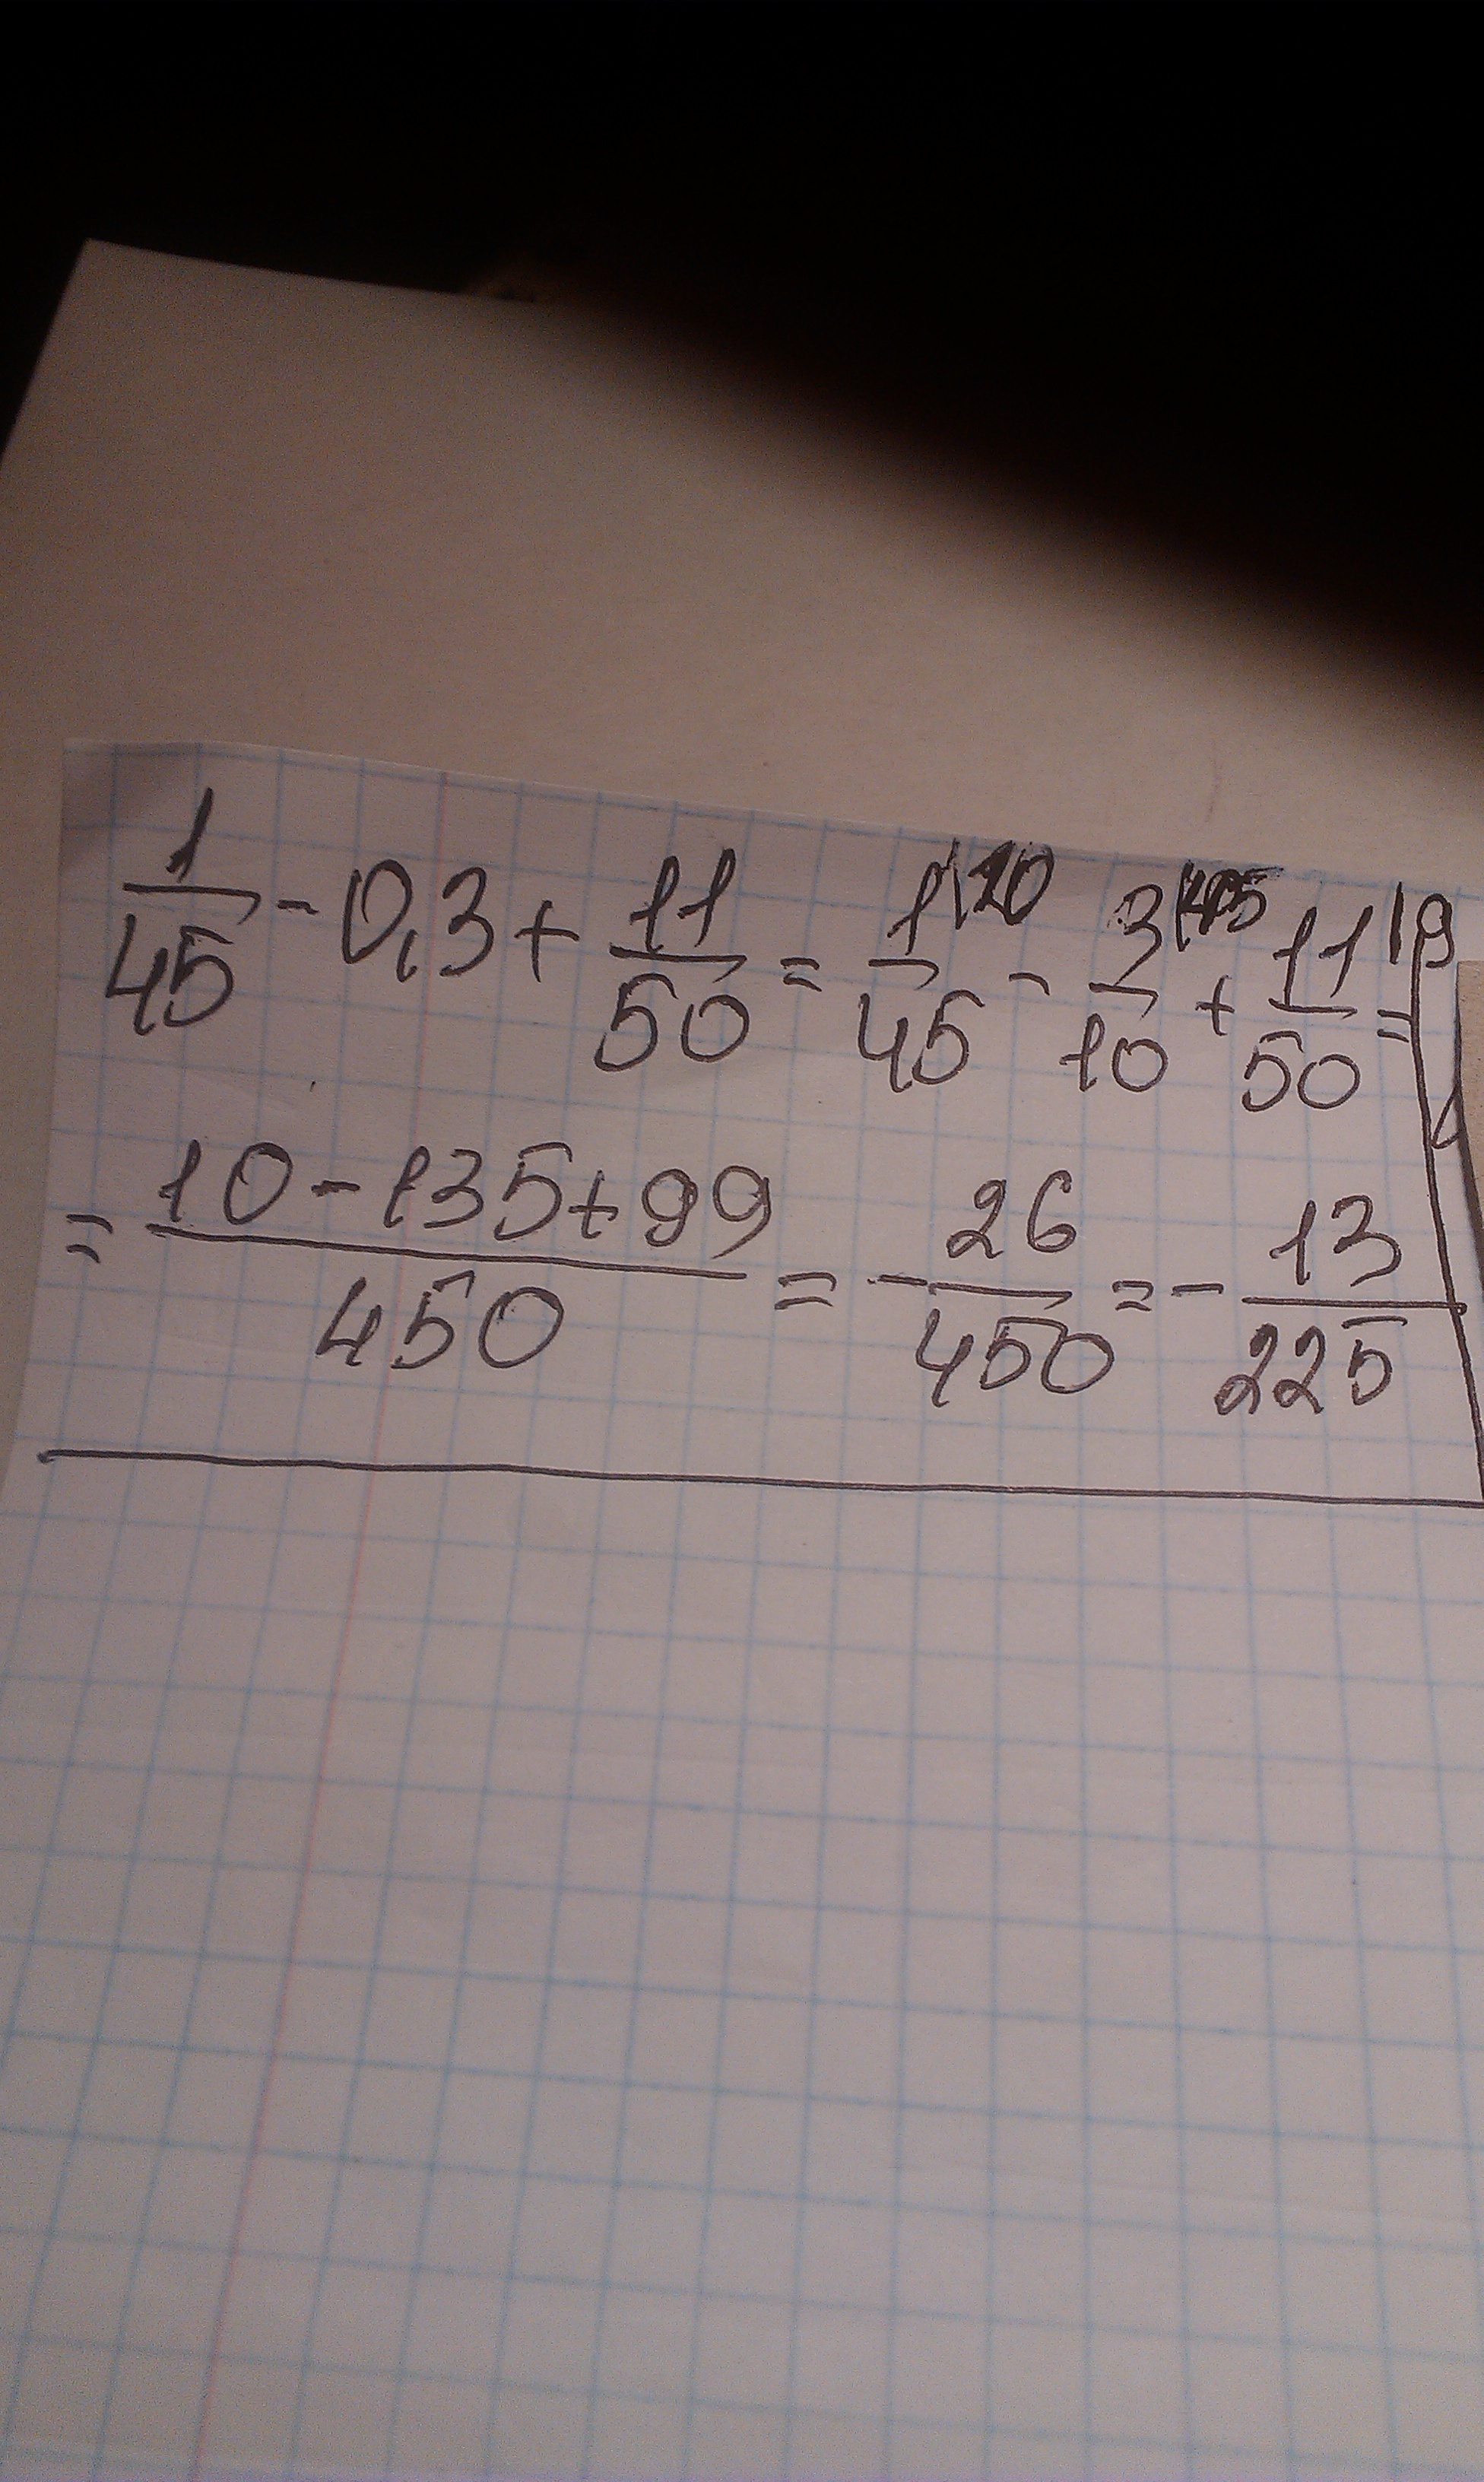 1/45 - 0,3 + 11/50 = 1/45 |10 - 3/10 |45 + 11/50 |9 =
= 10 - 135 + 99 / 450 = - 26/450 = - 13/225